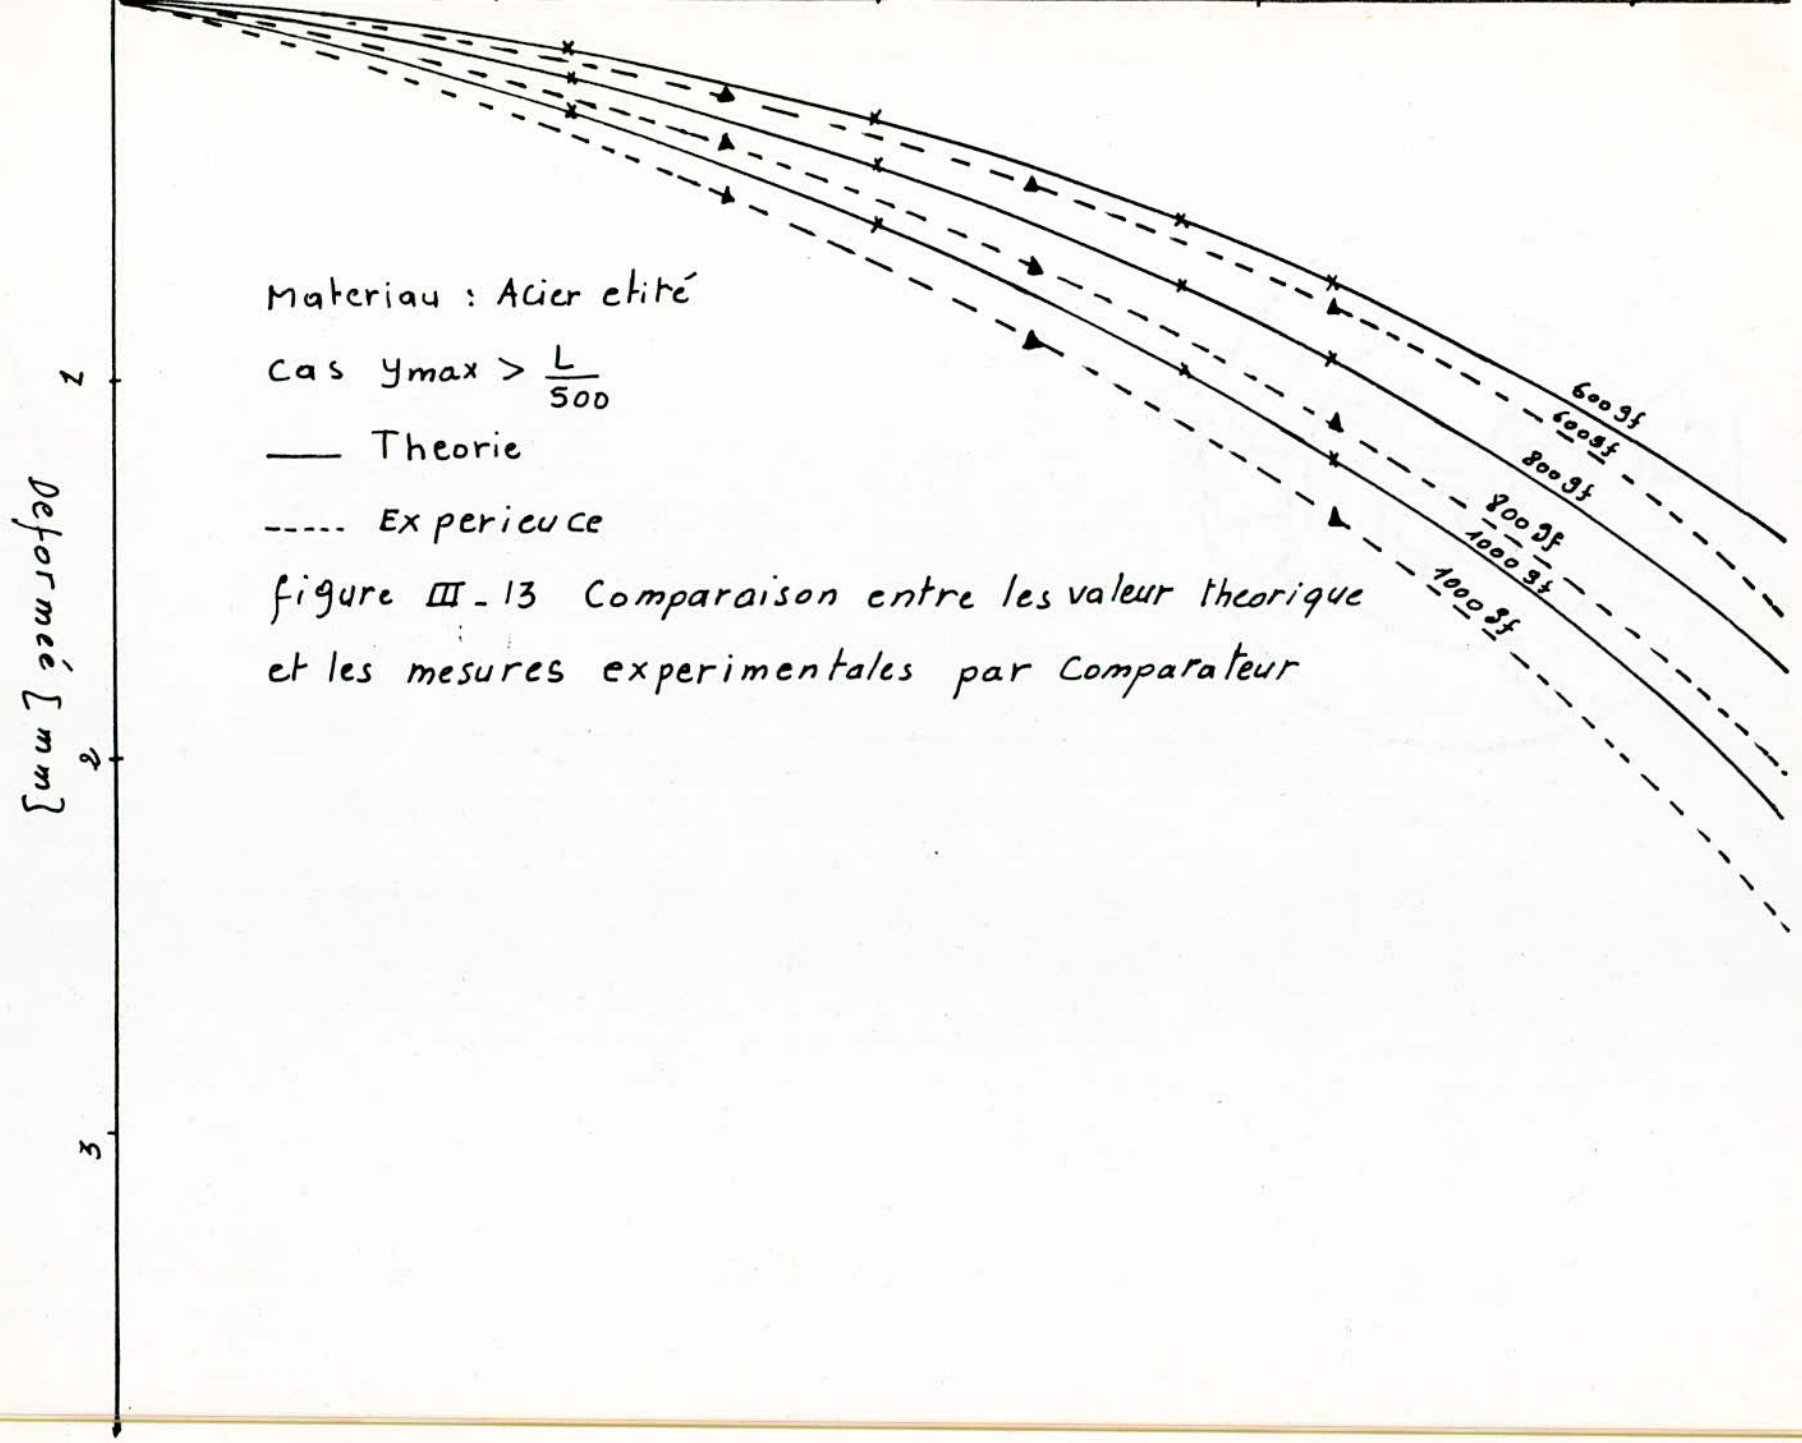 Materiau : Acier etiré
Cas ymax > L/500
Theorie
Experieuce
figure III-13 Comparaison entre les valeur theorique
et les mesures experimentales par Comparateur
Deformeé [mm]
1
2
3
600 gf
600 gf
800 gf
800 gf
1000 gf
1000 gf